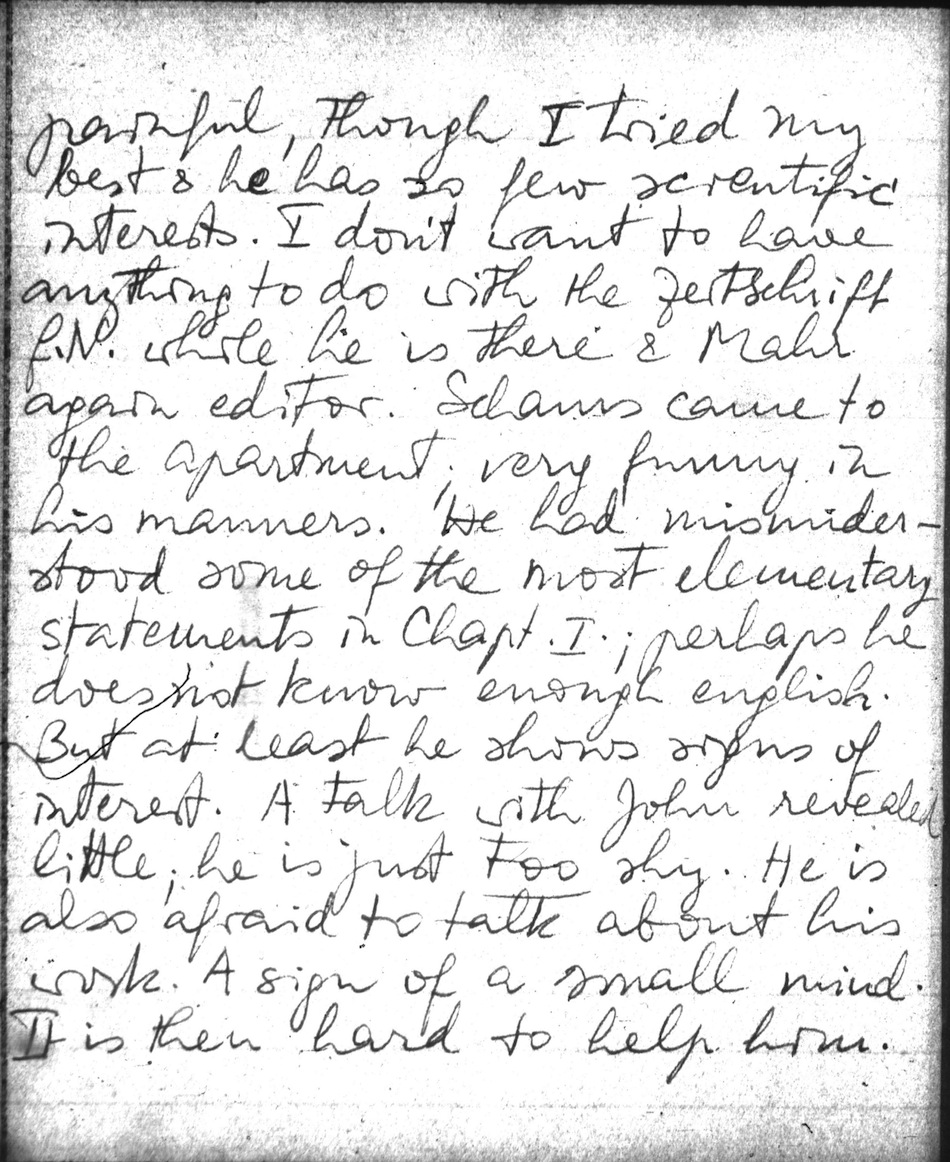 painful, though I tried my
best & he has so few scientific
interests. I don't want to have
anything to do with the Zeitschrift
f.N. while he is there & Mahr
again editor. Schams came to
the apartment; very funny in
his manners. He had misunder-
stood some of the most elementary
statements in Chapt. I.; perhaps he
does not know enough english.
But at least he shows signs of
interest. A talk with John revealed
little; he is just too shy. He is
also afraid to talk about his
work. A sign of a small mind.
It is then hard to help him.